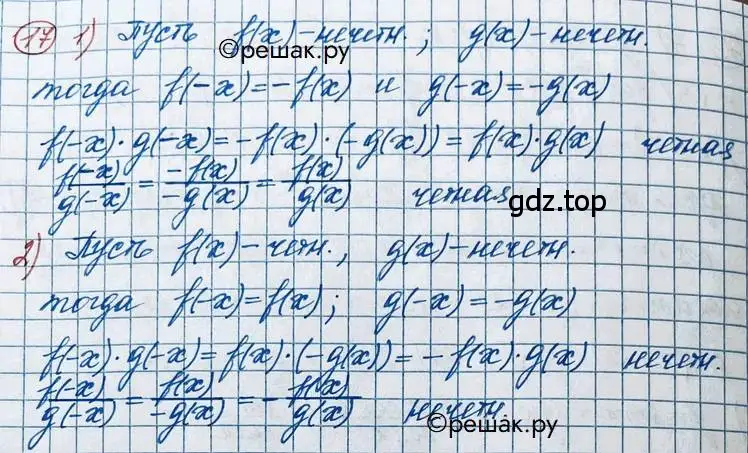 17 1) Пусть f(x) - нечетн.; g(x) - нечетн.
©решак.ру
тогда f(-x) = -f(x) и g(-x) = -g(x)
f(-x) · g(-x) = -f(x) · (-g(x)) = f(x) · g(x) четная
f(-x)/g(-x) = -f(x)/-g(x) = f(x)/g(x) четная
gdz.top
2) Пусть f(x) - четн., g(x) - нечетн.
тогда f(-x) = f(x); g(-x) = -g(x)
f(-x) · g(-x) = f(x) · (-g(x)) = -f(x) · g(x) нечетн.
f(-x)/g(-x) = f(x)/-g(x) = - f(x)/g(x) нечетн.
©решак.ру